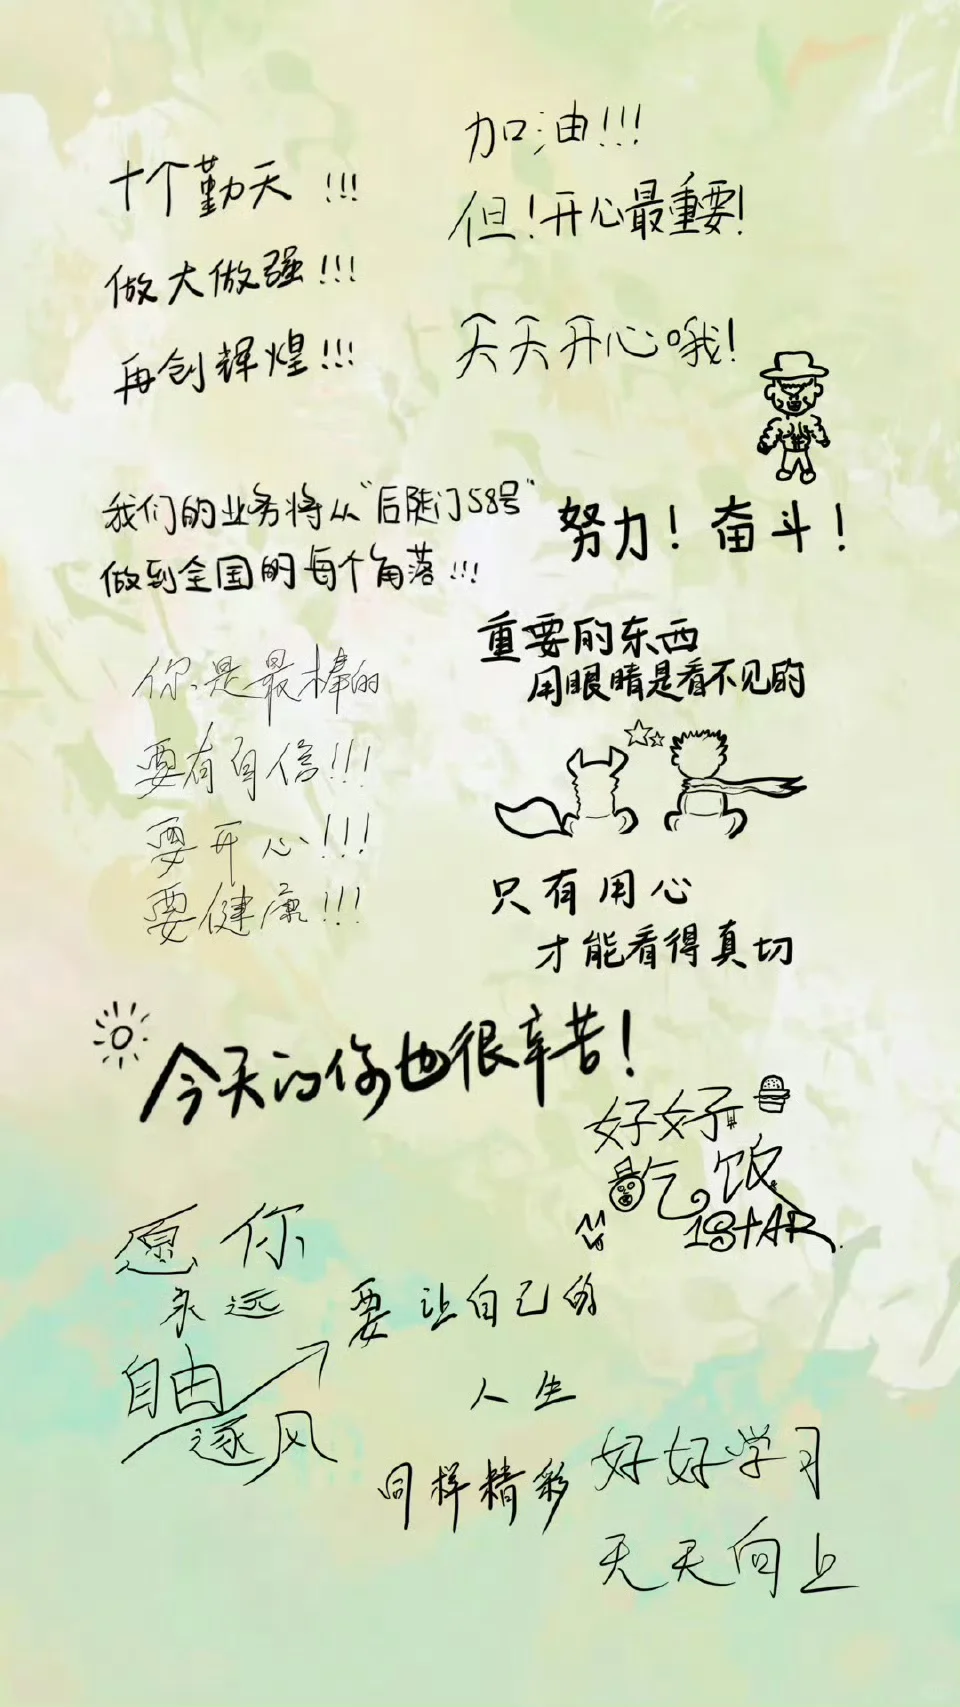 十个勤天!!!
做大做强!!!
再创辉煌!!!
加油!!!
但!开心最重要!
天天开心哦!
我们的业务将从“后陡门58号”
做到全国的每个角落!!!
努力!奋斗!
你是最棒的
要有自信!!!
要开心!!!
要健康!!!
重要的东西
用眼睛是看不见的
只有用心
才能看得真切
今天的你也很辛苦!
好好
吃饭
1STAR
愿你
永远
自由
逐风
要让自己的
人生
同样精彩
好好学习
天天向上